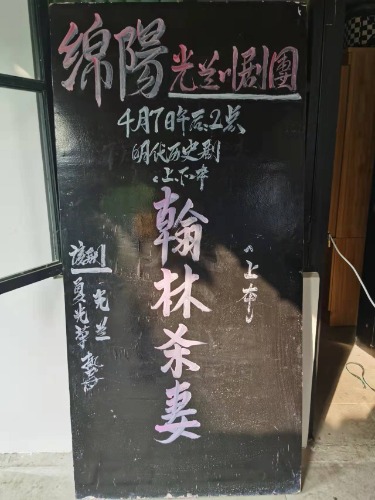 绵陽光兰川剧團
4月7日午后:2点
明代历史剧
《上下本》
翰林杀妻
《上本》
该剧
光兰
夏光華